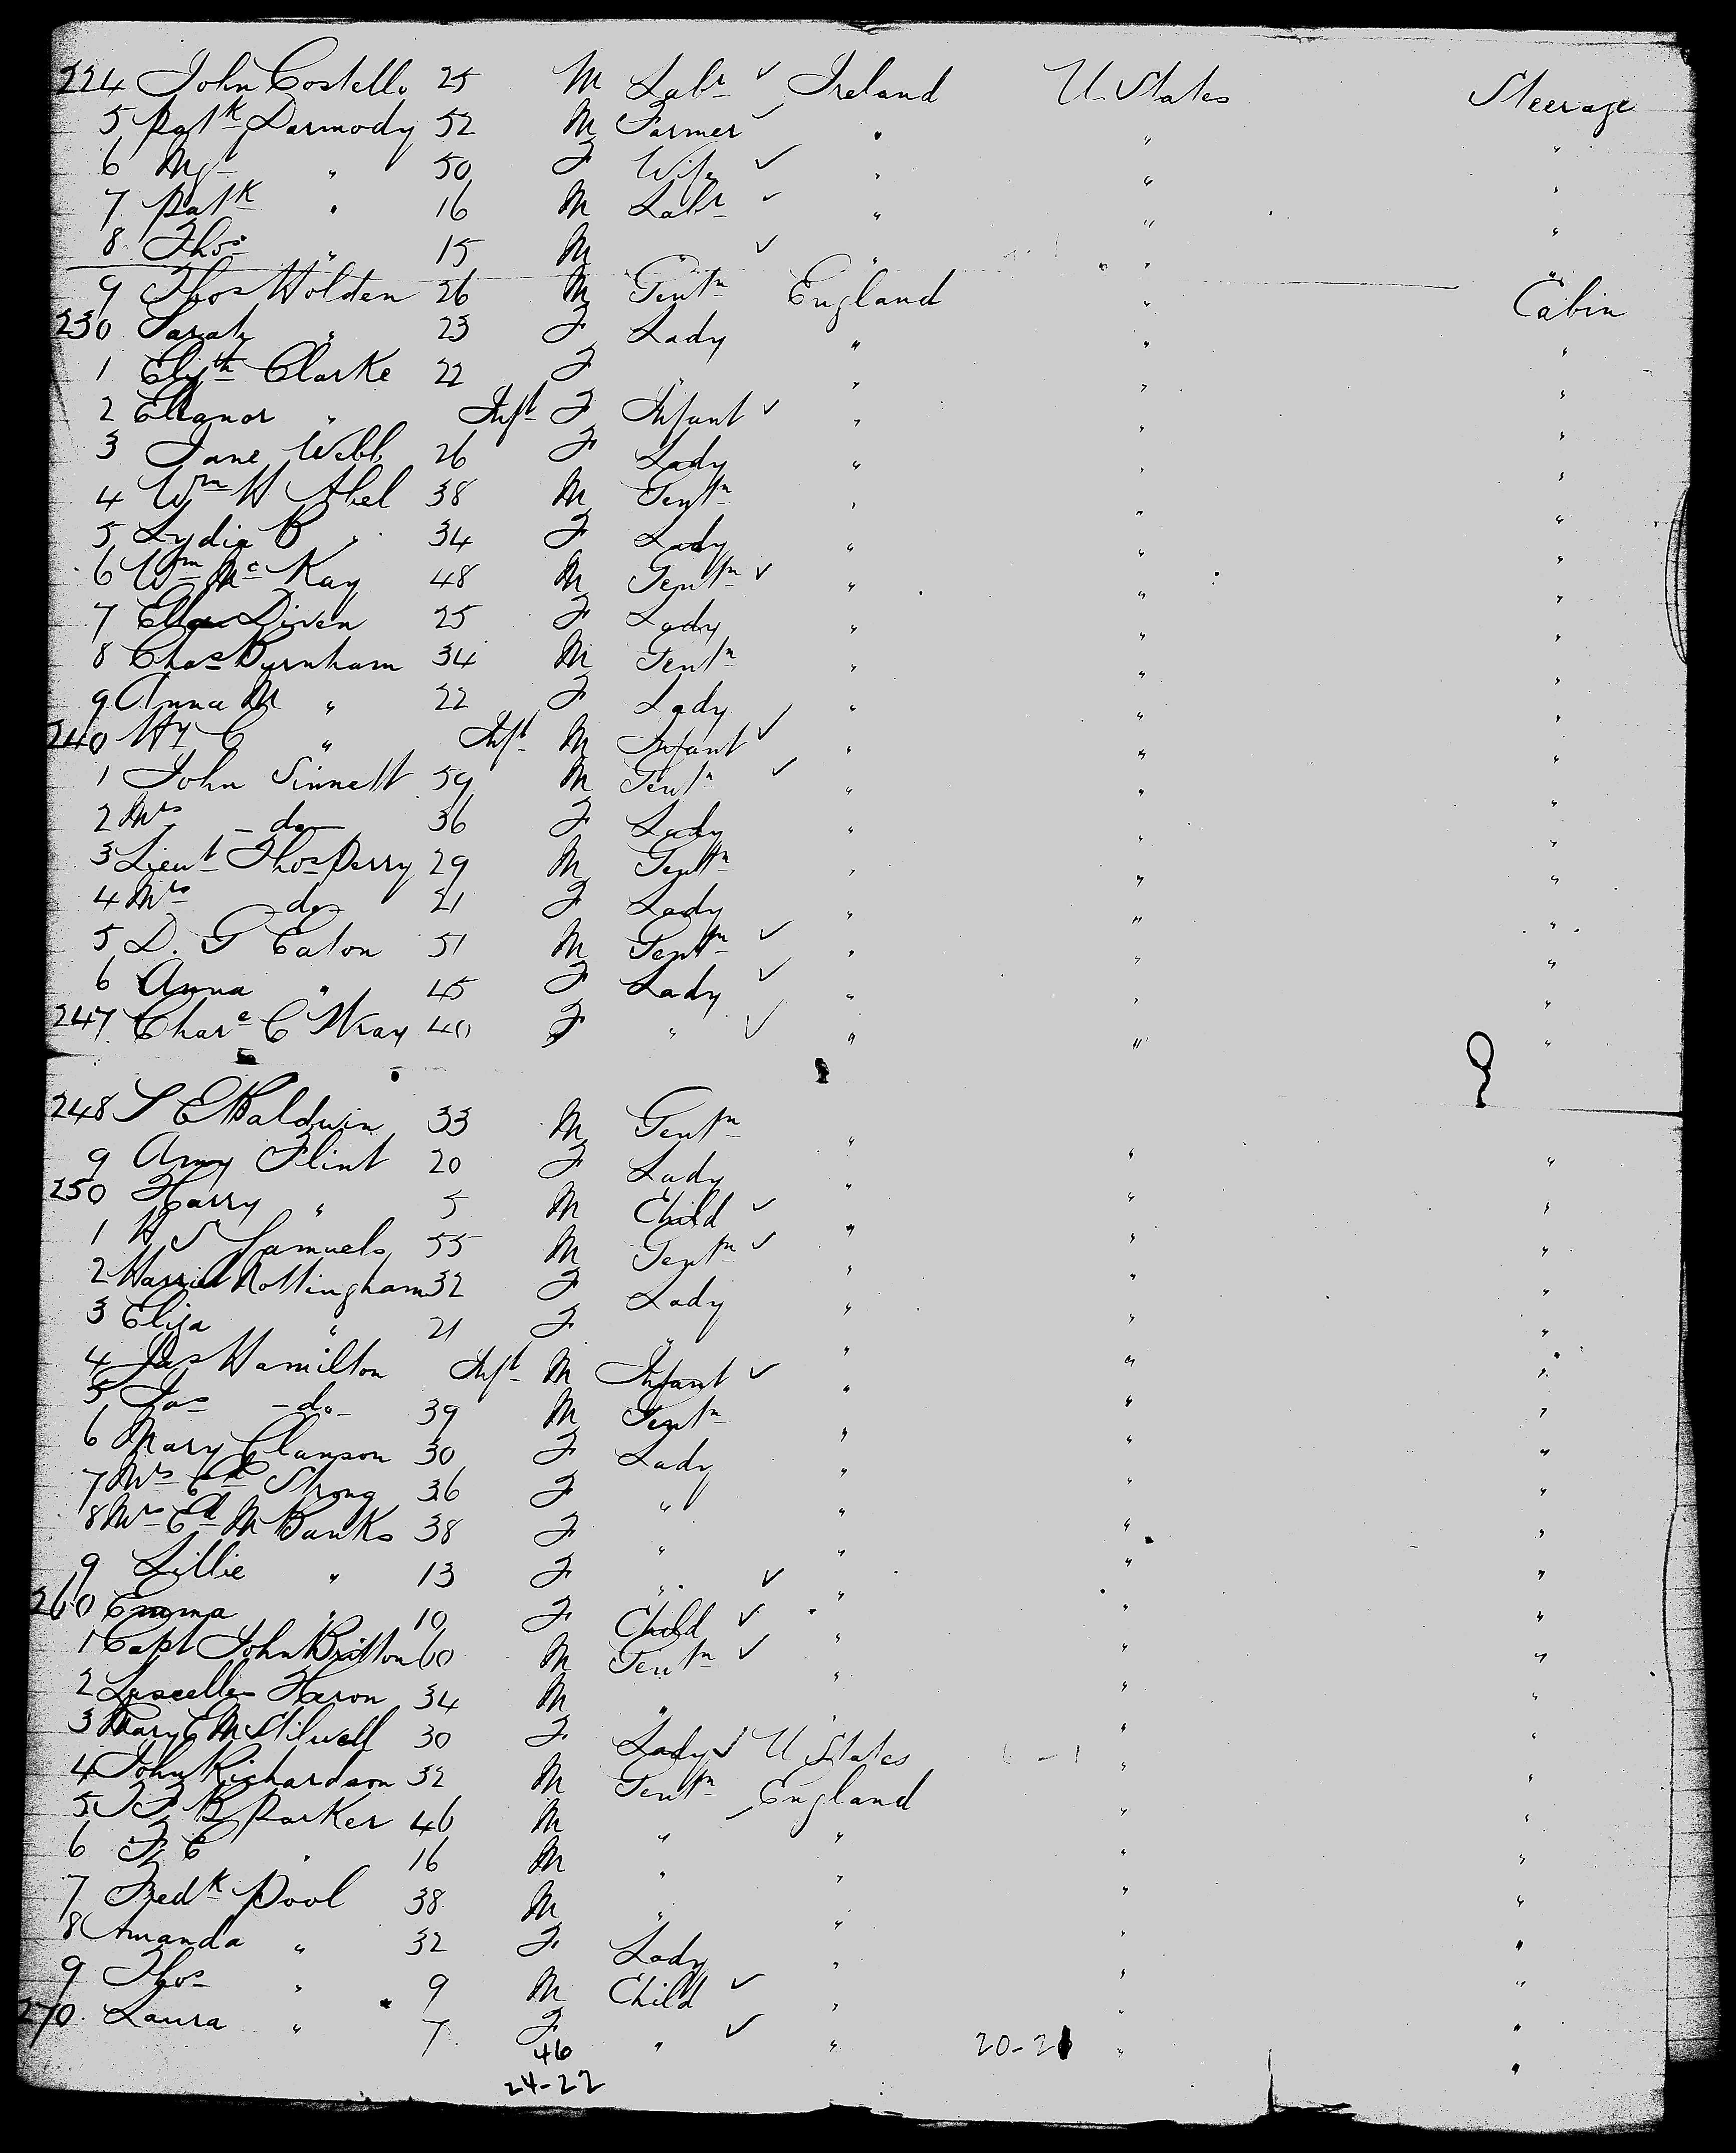 224 John Costello 25 M Labr ✓ Ireland U. States Steerage
5 Patk Darmody 52 M Farmer ✓ " " "
6 Mgt " 50 F Wife ✓ " " "
7 Patk " 16 M Labr ✓ " " "
8 Thos " 15 M " ✓ " " "
9 Thos Holden 26 M Gentn England " Cabin
230 Sarah " 23 F Lady " " "
1 Elizth Clarke 22 F " " " "
2 Eleanor " Inft F Infant ✓ " " "
3 Jane Webb 26 F Lady " " "
4 Wm H Abel 38 M Gentn " " "
5 Lydia B " 34 F Lady " " "
6 Wm Mc Kay 48 M Gentn ✓ " " "
7 Ella Diven 25 F Lady " " "
8 Chas Byrnham 34 M Gentn " " "
9 Anna M " 22 F Lady " " "
240 Hy C " Inft M Infant ✓ " " "
1 John Sinnett 59 M Gentn ✓ " " "
2 Mrs - do - 36 F Lady " " "
3 Lieut Thos Perry 29 M Gentn " " "
4 Mrs - do 21 F Lady " " "
5 D. G Eaton 51 M Gentn ✓ " " "
6 Anna " 45 F Lady ✓ " " "
247 Chare C Wray 40 F " ✓ " " "
248 S E Baldwin 33 M Gentn " " "
9 Amy Flint 20 F Lady " " "
250 Harry " 5 M Child ✓ " " "
1 H S Samuels 55 M Gentn ✓ " " "
2 Harriet Nottingham 32 F Lady " " "
3 Eliza " 21 F " " " "
4 Jas Hamilton Inft M Infant ✓ " " "
5 Jas - do - 39 M Gentn " " "
6 Mary Clanson 30 F Lady " " "
7 Mrs Ed Strong 36 F " " " "
8 Mrs Ed M Banks 38 F " " " "
9 Lillie " 13 F " ✓ " " "
260 Emma " 10 F Child ✓ " " "
1 Capt John Britton 60 M Gentn ✓ " " "
2 Lascelles Heron 34 M " " " "
3 Mary E M Stilwell 30 F Lady ✓ U States " "
4 John Richardson 32 M Gentn England " "
5 F B Parker 46 M " " " "
6 F C " 16 M " " " "
7 Fredk Pool 38 M " " " "
8 Amanda " 32 F Lady " " "
9 Thos " 9 M Child ✓ " " "
270 Laura " 7 F " ✓ " 20-21 " "
46
24-22